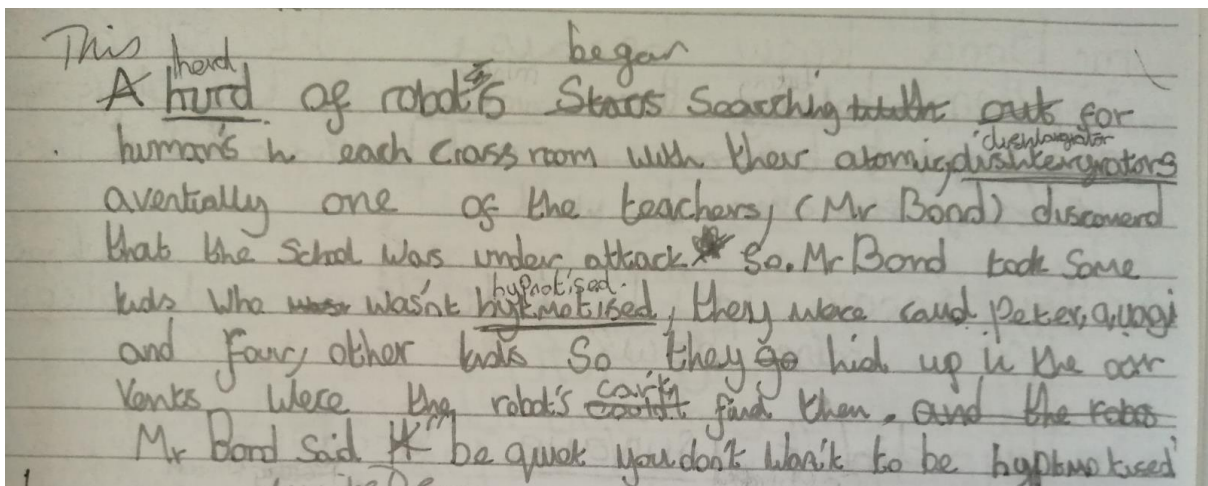 This herd began
A hurd of robot's Stars Searching out for
human's in each Crass room with their atomic dishintergrators
aventially one of the teachers, (Mr Bond) discoverd
that the School was under attack So. Mr Bond took Some
hypnotised.
kids who wasn't hyptmotised, they were caud Peter, quagi
and four, other kids So they go hid up in the air
Vents Were the robot's can't couldn't find them. and the robo
Mr Bond Said "be quiet you don't wan't to be hyptmotised